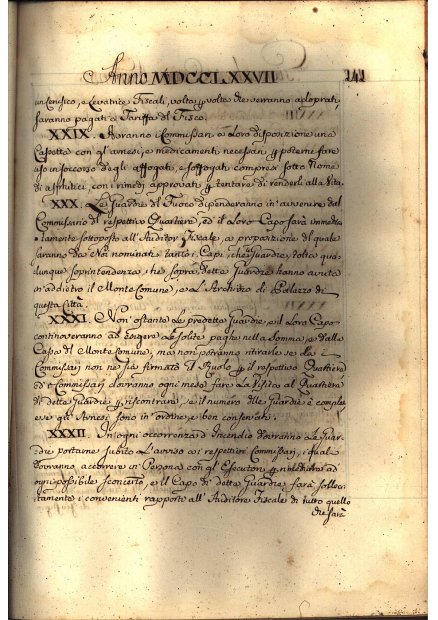 Anno MDCCLXXVII 141
un Cerusico, e Levatrice Fiscali, volta p volta che verranno adoprati,
saranno pagati a Tariffa del Fisco.
XXIX. Avranno i Commissari a Loro disposizione una
Cassetta con gl'arnesi, e medicamenti necessari p poterne fare
uso in soccorso degli affogati, e soffogati compresi sotto Nome
di asfittici, con i rimedj approvati p tentare di renderli alla Vita.
XXX. Le Guardie del Fuoco dipenderanno in avvenire dal
Commissario del respettivo Quartiere, ed il Loro Capo sarà immedia-
tamente sottoposto all'Auditor Fiscale, a proporzione del quale
saranno da Noi nominati tanto i Capi, che Guardie, tolta qua-
lunque soprintendenza, che sopra dette Guardie hanno avuta
in addietro il Monte Comune, e L'Archivio di Palazzo di
questa Città.
XXXI. Non ostante Le predette Guardie, e il Loro Capo
continoveranno ad esigere Le solite paghe nella Somma, e dalla
Cassa del Monte Comune, ma non potranno ritirarle se da i
Commissarj non ne sia firmato il Ruolo p il respettivo Quartiere
ed i Commissarj dovranno ogni mese fare La Visita al Quartiere
di dette Guardie p riscontrare, se il numero delle Guardie è completo
e se gli Arnesi sono in ordine, e ben conservati.
XXXII. In ogni occorrenza d'Incendio dovranno Le Guar-
die portarne subito L'avviso ai respettivi Commissarj, i quali
dovranno accorrere in Persona con gl'Esecutori p ad
ogni possibile sconcerto, e il Capo di dette Guardie farà solleci-
tamente i convenienti rapporti all'Auditore Fiscale di tutto quello
che sarà